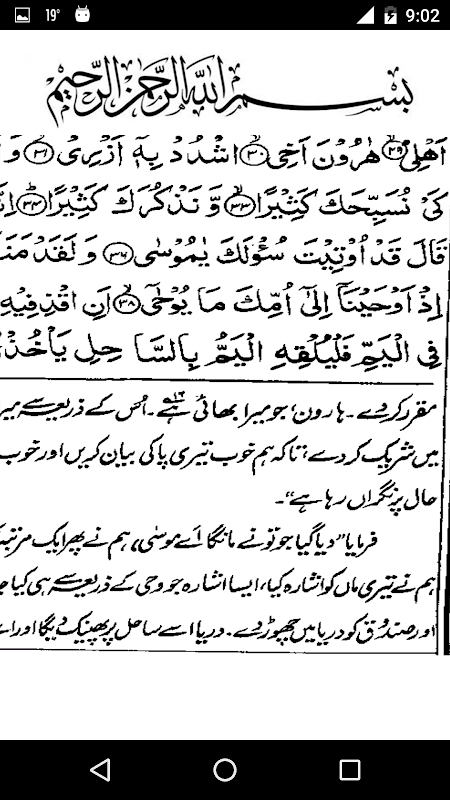 19°
9:02
بسم الله الرحمن الرحيم
اَهْلِیْ ﴿۲۹﴾ هٰرُوْنَ اَخِی ﴿۳۰﴾ اشْدُدْ بِهٖۤ اَزْرِیْ ﴿۳۱﴾ وَ
كَیْ نُسَبِّحَكَ كَثِیْرًا ﴿۳۳﴾ وَّ نَذْكُرَكَ كَثِیْرًا ﴿۳۴﴾
قَالَ قَدْ اُوْتِیْتَ سُؤْلَكَ یٰمُوْسٰی ﴿۳۶﴾ وَ لَقَدْ مَنَ
اِذْ اَوْحَیْنَاۤ اِلٰۤی اُمِّكَ مَا یُوْحٰۤی ﴿۳۸﴾ اَنِ اقْذِفِیْهِ
فِی الْیَمِّ فَلْیُلْقِهِ الْیَمُّ بِالسَّاحِلِ یَاْخُذْ
مقرر کر دے۔ ہارون، جو میرا بھائی ہے۔ اُس کے ذریعہ سے میر
میں شریک کر دے، تاکہ ہم خوب تیری پاکی بیان کریں اور خوب
حال پر نگراں رہا ہے“۔
فرمایا ”دیا گیا جو تو نے مانگا اَے موسٰی، ہم نے پھر ایک مرتبہ
ہم نے تیری ماں کو اشارہ کیا، ایسا اشارہ جو وحی کے ذریعہ سے ہی کیا
اور صندوق کو دریا میں چھوڑ دے۔ دریا اسے ساحل پر پھینک دیگا اور اسے